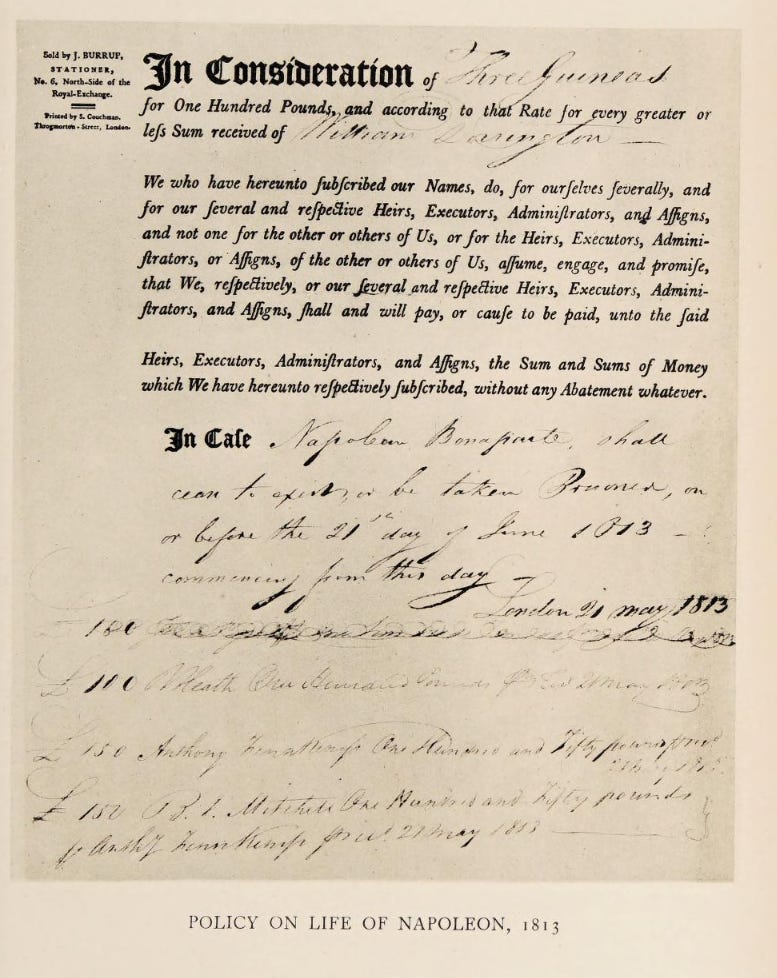 Sold by J. BURRUP,
STATIONER,
No. 6, North-Side of the
Royal-Exchange.
Printed by S. Couchman,
Throgmorton-Street, London.
In Consideration of Three Guineas
for One Hundred Pounds, and according to that Rate for every greater or
leſs Sum received of William Dorington
We who have hereunto ſubſcribed our Names, do, for ourſelves ſeverally, and
for our ſeveral and reſpective Heirs, Executors, Adminiſtrators, and Aſſigns,
and not one for the other or others of Us, or for the Heirs, Executors, Admini-
ſtrators, or Aſſigns, of the other or others of Us, aſſume, engage, and promiſe,
that We, reſpectively, or our ſeveral and reſpective Heirs, Executors, Admini-
ſtrators, and Aſſigns, ſhall and will pay, or cauſe to be paid, unto the ſaid
Heirs, Executors, Adminiſtrators, and Aſſigns, the Sum and Sums of Money
which We have hereunto reſpectively ſubſcribed, without any Abatement whatever.
In Caſe Napoleon Bonaparte, shall
cease to exist, or be taken Prisoner, on
or before the 21st day of June 1813 —
commencing from this day —
London 21 may 1813
£ 100
£ 100 Heath One Hundred Pounds 21 may 1813
£ 150 Anthony One Hundred and Fifty pounds
£ 150 Mitchell One Hundred and Fifty pounds
21 may 1813
POLICY ON LIFE OF NAPOLEON, 1813